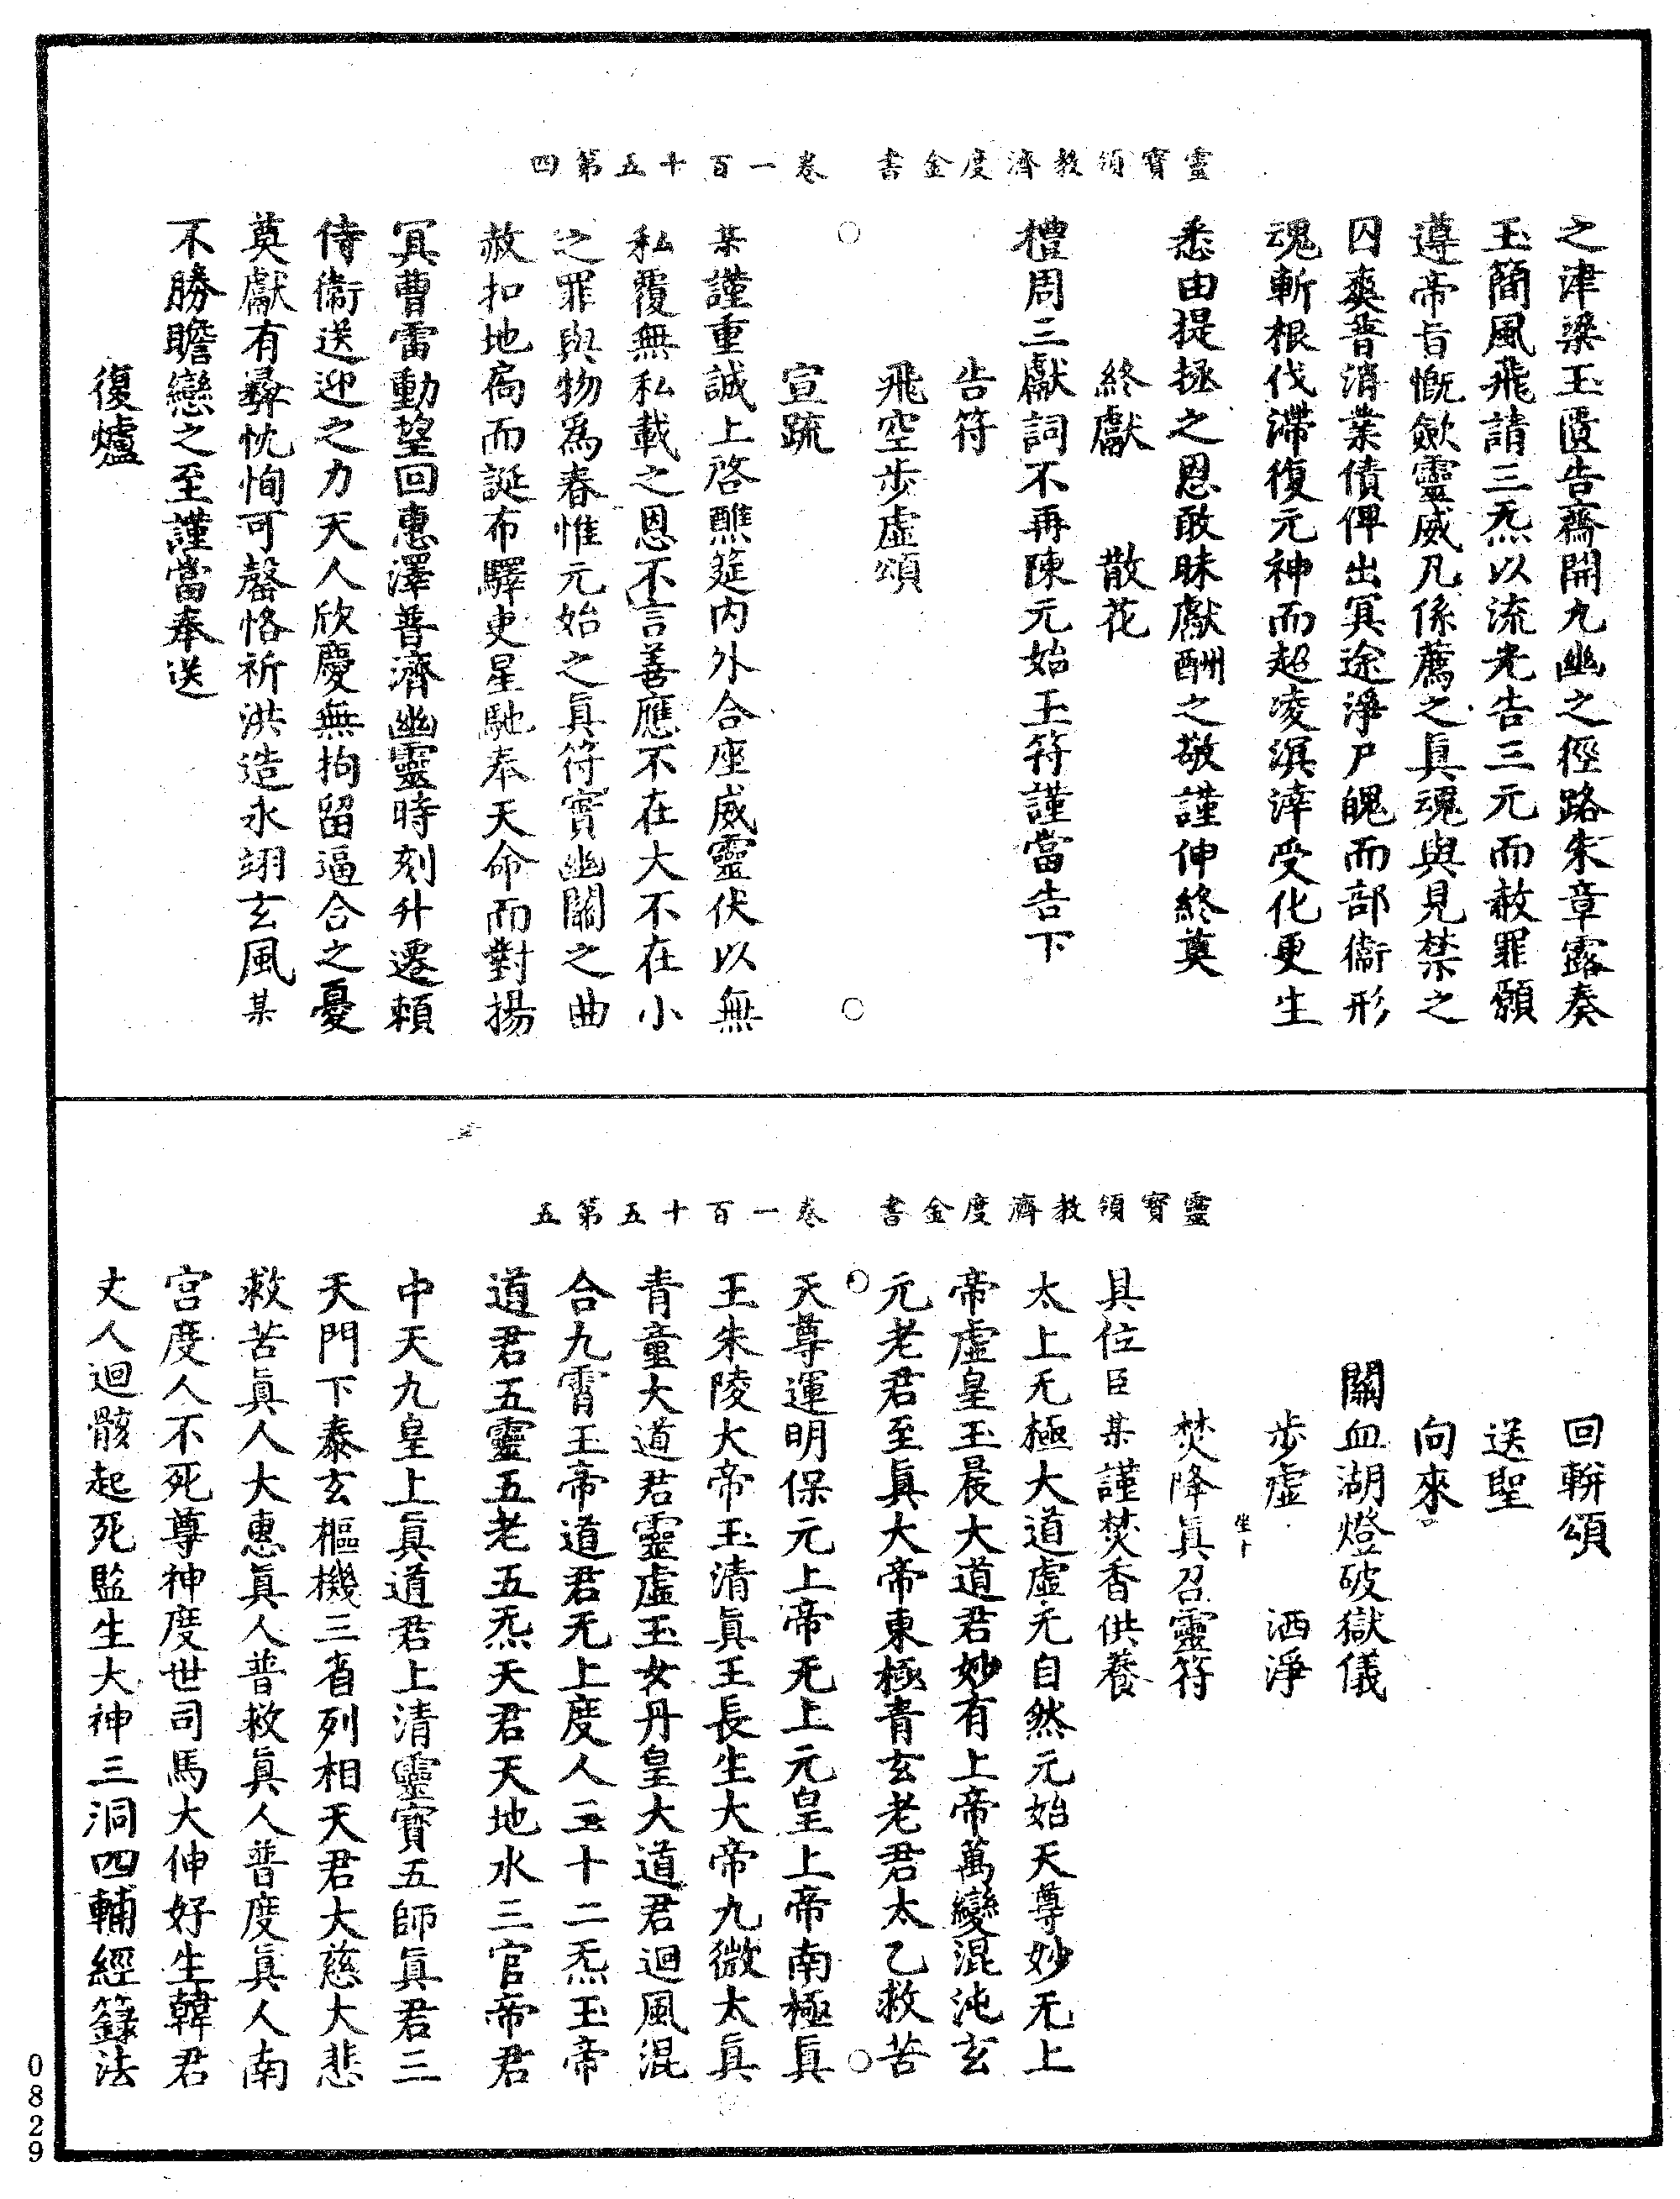 靈寶領教濟度金書　卷一百十五第四
之津梁玉匱告齋開九幽之徑路朱章露奏
玉簡風飛請三炁以流光告三元而赦罪願
遵帝旨慨歛靈威凡係薦之眞魂與見禁之
囚爽普消業債俾出冥途淨尸魄而部衞形
魂斬根伐滯復元神而超凌溟涬受化更生
悉由提拯之恩敢昧獻酬之敬謹伸終奠
終獻　散花
禮周三獻詞不再陳元始玉符謹當告下
告符
飛空步虛頌
宣疏
某謹重誠上啓醮筵內外合座威靈伏以無
私覆無私載之恩不言善應不在大不在小
之罪與物爲春惟元始之眞符實幽關之曲
赦扣地扃而誕布驛吏星馳奉天命而對揚
冥曹雷動望回惠澤普濟幽靈時刻升遷頼
侍衞送迎之力天人欣慶無拘留逼合之憂
奠獻有彝忱恂可罄恪祈洪造永翊玄風某
不勝瞻戀之至謹當奉送
復爐
靈寶領教濟度金書　卷一百十五第五
回輧頌
送聖
向來
關血湖燈破獄儀
步虛　洒淨
焚降眞召靈符
具位臣某謹焚香供養
太上无極大道虛无自然元始天尊妙无上
帝虛皇玉晨大道君妙有上帝萬變混沌玄
元老君至眞大帝東極青玄老君太乙救苦
天尊運明保元上帝无上元皇上帝南極眞
王朱陵大帝玉清眞王長生大帝九微太眞
青童大道君靈虛玉女丹皇大道君迴風混
合九霄玉帝道君无上度人三十二炁玉帝
道君五靈五老五炁天君天地水三官帝君
中天九皇上眞道君上清靈寶五師眞君三
天門下泰玄樞機三省列相天君大慈大悲
救苦眞人大惠眞人普救眞人普度眞人南
宮度人不死尊神度世司馬大伸好生韓君
丈人迴骸起死監生大神三洞四輔經籙法
0829